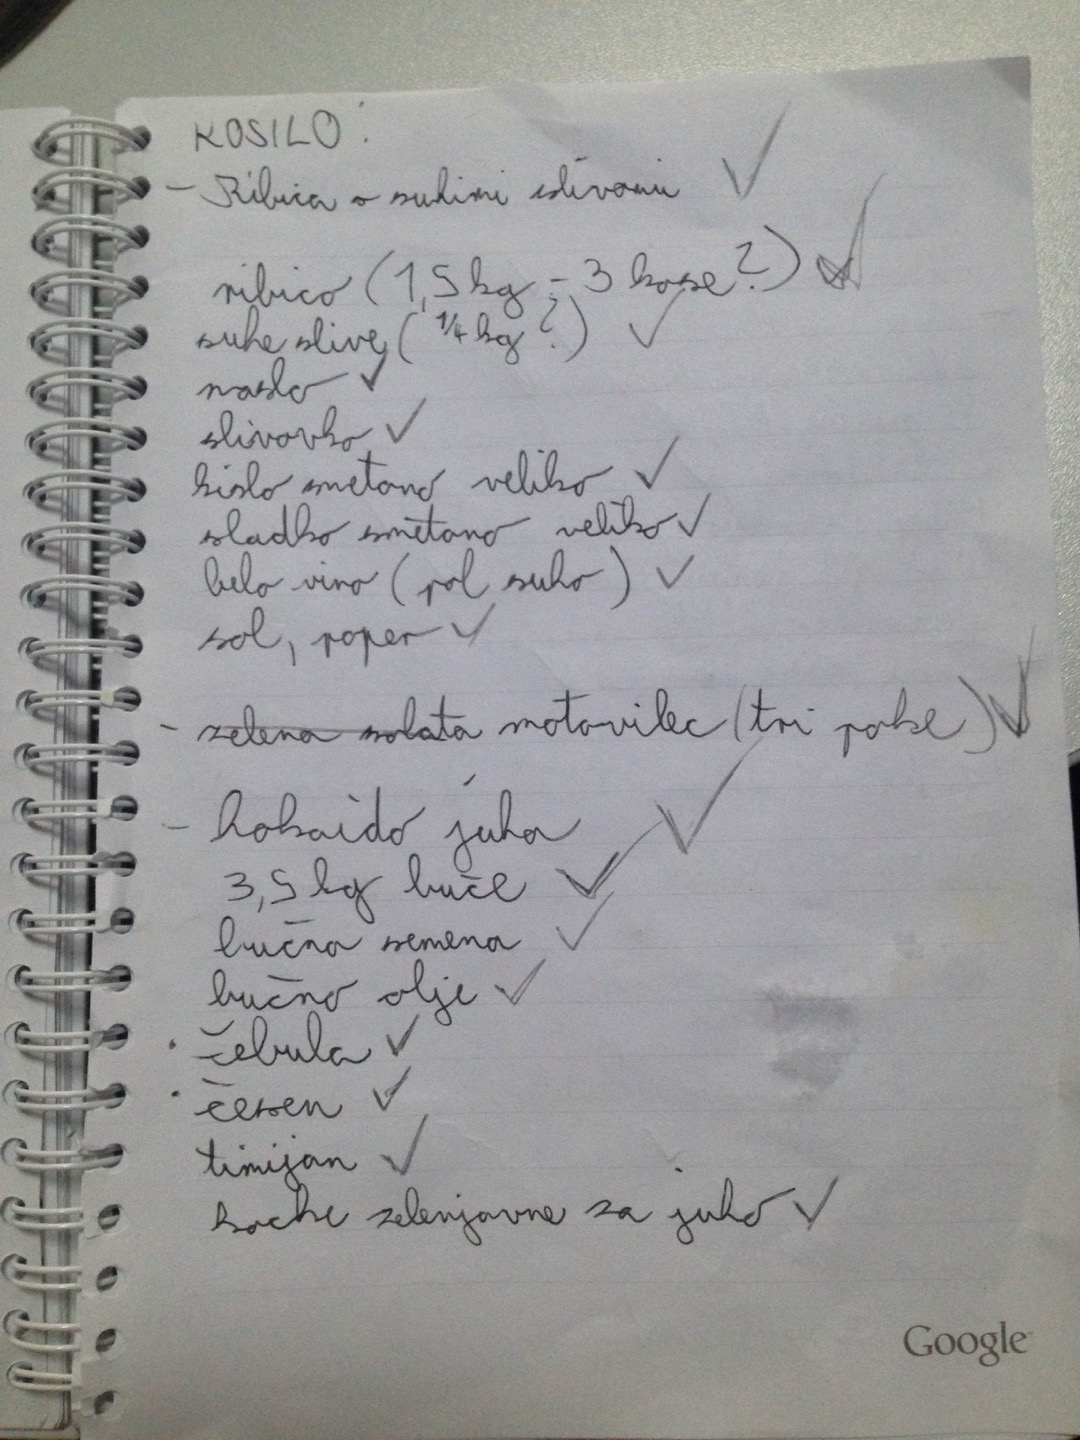 KOSILO:
- Ribica s suhimi slivami ✓
ribico (1,5 kg - 3 kose?) ✓
suhe slive (1/4 kg?) ✓
maslo ✓
slivovko ✓
kislo smetano veliko ✓
sladko smetano veliko ✓
belo vino (pol suho) ✓
sol, poper ✓
- ~~zelena solata~~ motovilec (tri pake) ✓
- hokaido juha ✓
3,5 kg buče ✓
bučna semena ✓
bučno olje ✓
• čebula ✓
• česen ✓
timijan ✓
kocke zelenjavne za juho ✓
Google